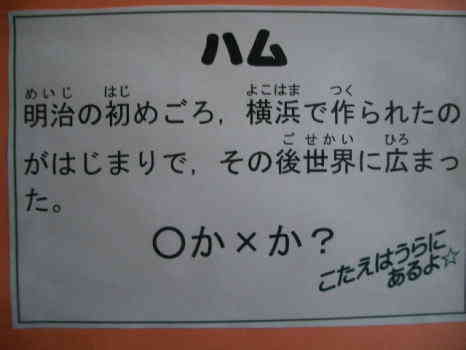 ハム
めいじ はじ よこはま つく
明治の初めごろ，横浜で作られたの
ご せかい ひろ
がはじまりで，その後世界に広まっ
た。
○か×か？
こたえはうらに
あるよ☆